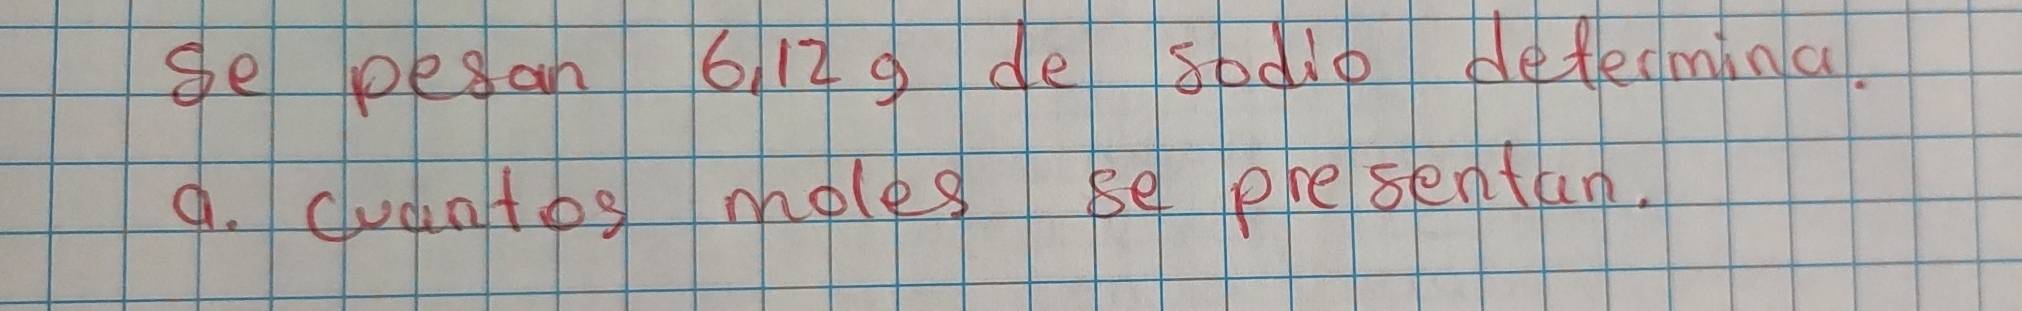 Se pesan 6,12 g de sodio determina.
a. cuantos moles se presentan.